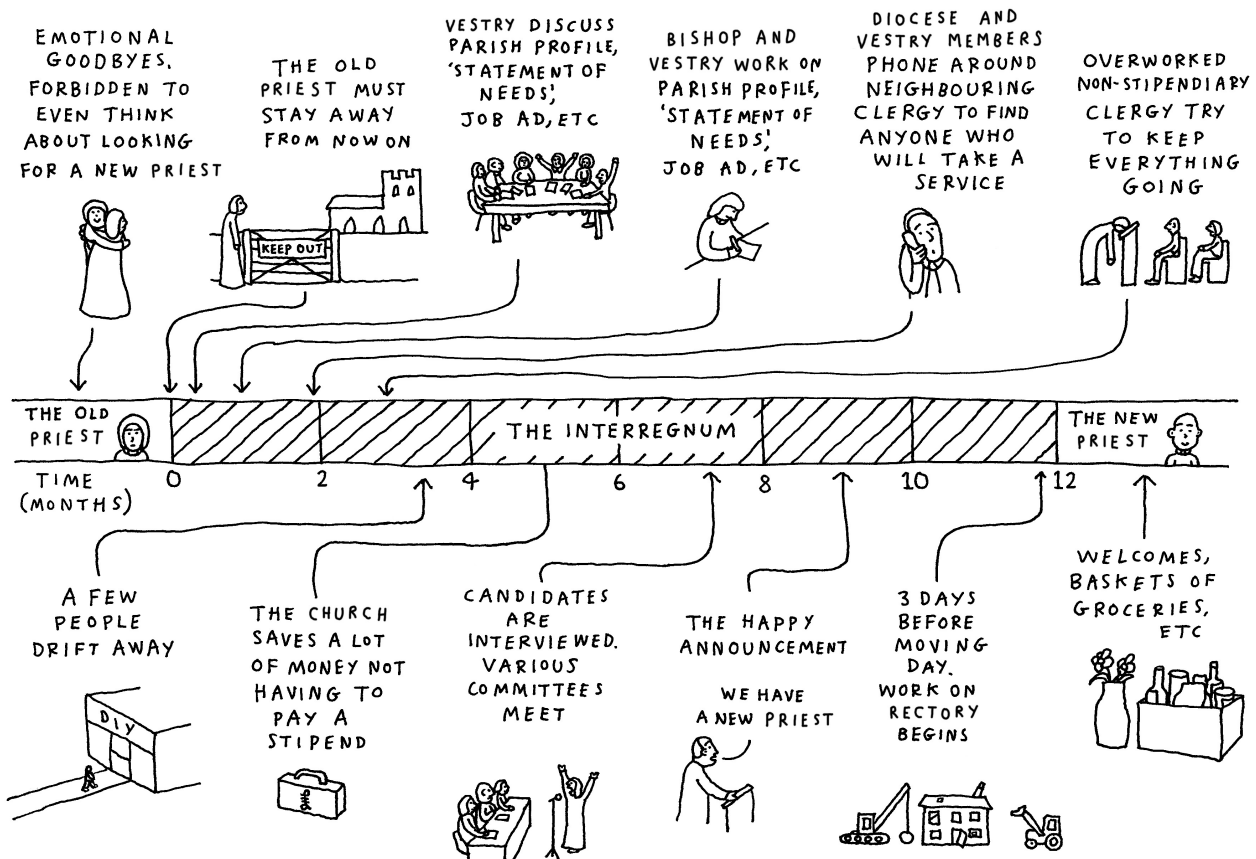 EMOTIONAL
GOODBYES.
FORBIDDEN TO
EVEN THINK
ABOUT LOOKING
FOR A NEW PRIEST
THE OLD
PRIEST MUST
STAY AWAY
FROM NOW ON
KEEP OUT
VESTRY DISCUSS
PARISH PROFILE,
'STATEMENT OF
NEEDS',
JOB AD, ETC
BISHOP AND
VESTRY WORK ON
PARISH PROFILE,
'STATEMENT OF
NEEDS',
JOB AD, ETC
DIOCESE AND
VESTRY MEMBERS
PHONE AROUND
NEIGHBOURING
CLERGY TO FIND
ANYONE WHO
WILL TAKE A
SERVICE
OVERWORKED
NON-STIPENDIARY
CLERGY TRY
TO KEEP
EVERYTHING
GOING
THE OLD
PRIEST
THE INTERREGNUM
THE NEW
PRIEST
TIME
(MONTHS)
0 2 4 6 8 10 12
A FEW
PEOPLE
DRIFT AWAY
DIY
THE CHURCH
SAVES A LOT
OF MONEY NOT
HAVING TO
PAY A
STIPEND
CANDIDATES
ARE
INTERVIEWED.
VARIOUS
COMMITTEES
MEET
THE HAPPY
ANNOUNCEMENT
WE HAVE
A NEW PRIEST
3 DAYS
BEFORE
MOVING
DAY.
WORK ON
RECTORY
BEGINS
WELCOMES,
BASKETS OF
GROCERIES,
ETC